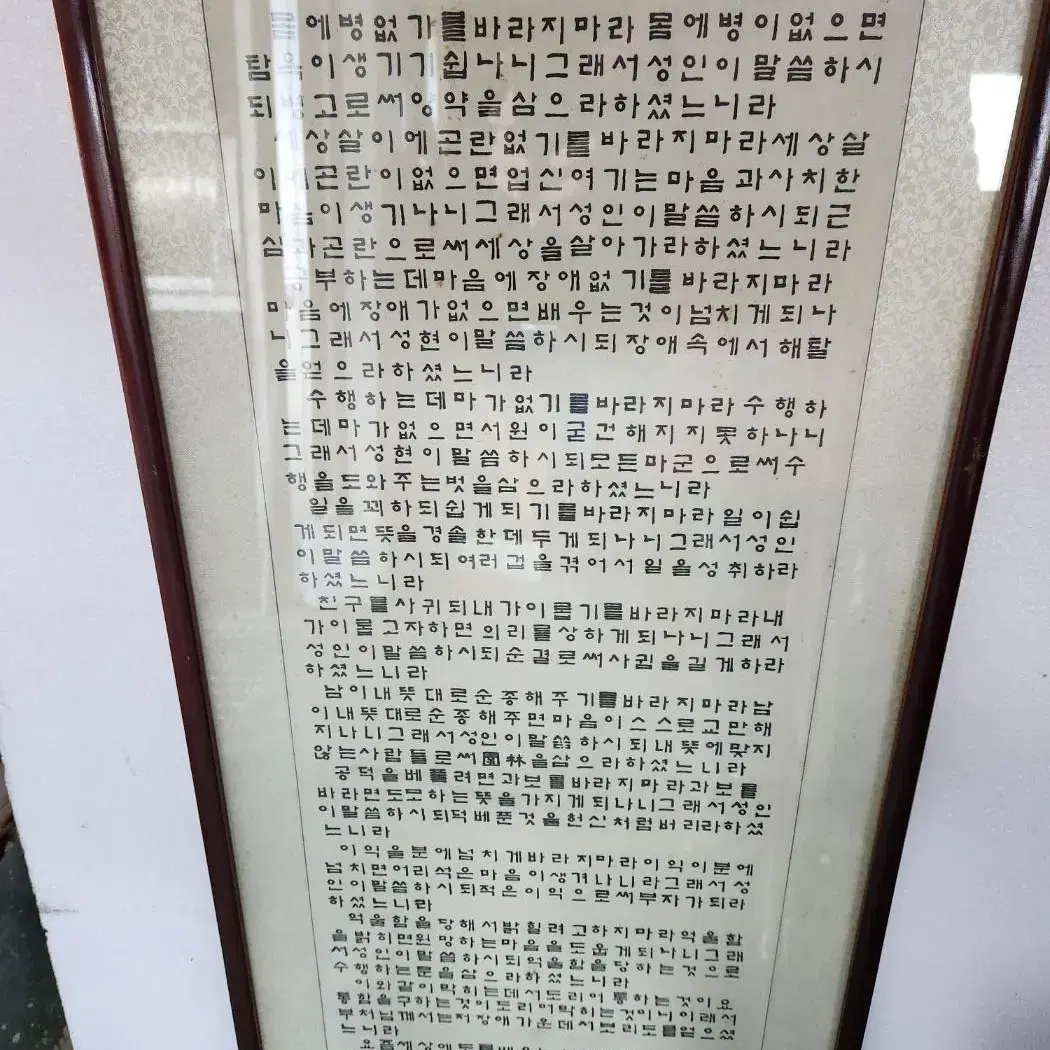 몸에병없기를바라지마라 몸에병이없으면
탐욕이생기기쉽나니그래서성인이 말씀하시
되병고로써양약을삼으라하셨느니라
세상살이에곤란없기를바라지마라세상살
이에곤란이없으면업신여기는마음과사치한
마음이생기나니그래서성인이말씀하시되근
심과곤란으로써세상을살아가라하셨느니라
공부하는데마음에장애없기를 바라지마라
마음에장애가없으면배우는것이넘치게되나
니그래서성현이말씀하시되장애속에서해탈
을얻으라하셨느니라
수행하는데마가없기를바라지마라수행하
는데마가없으면서원이굳건해지지못하나니
그래서성현이말씀하시되모든마군으로써수
행을도와주는벗을삼으라하셨느니라
일을꾀하되쉽게되기를바라지마라일이쉽
게되면뜻을경솔한데두게되나니그래서성인
이말씀하시되여러겁을겪어서일을성취하라
하셨느니라
친구를사귀되내가이롭기를바라지마라내
가이롭고자하면의리를상하게되나니그래서
성인이말씀하시되순결로써사귐을길게하라
하셨느니라
남이내뜻대로순종해주기를바라지마라남
이내뜻대로순종해주면마음이스스로교만해
지나니그래서성인이말씀하시되내뜻에맞지
않는사람들로써園林을삼으라하셨느니라
공덕을베풀려면과보를바라지마라과보를
바라면도모하는뜻을가지게되나니그래서성인
이말씀하시되덕베푼것을헌신처럼버리라하셨
느니라
이익을분에넘치게바라지마라이익이분에
넘치면어리석은마음이생겨나니라그래서성
인이말씀하시되적은이익으로써부자가되라
하셨느니라
억울함을당해서밝힐려고하지마라억울함
을밝히면원망하는마음을도웁게되나니그래
서성인이말씀하시되억울함을당하는것으로
수행하는문을삼으라하셨느니라
이와같이막히는데서도리어통하는것이요
통함을구하는것이도리어막히는것이니이래서
부처님께서는저장애가운데서보리도를얻으셨
느니라